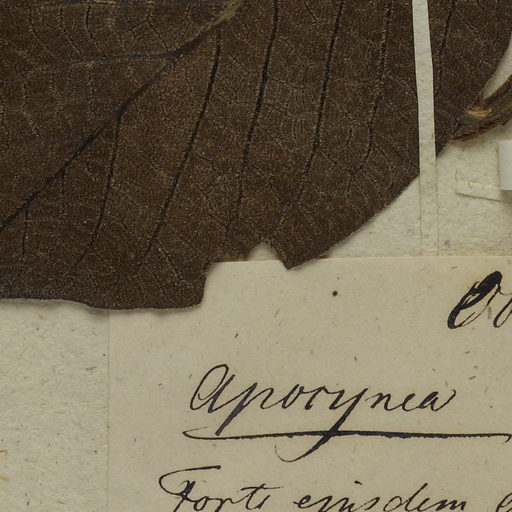 Apocynea
Forte ejusdem